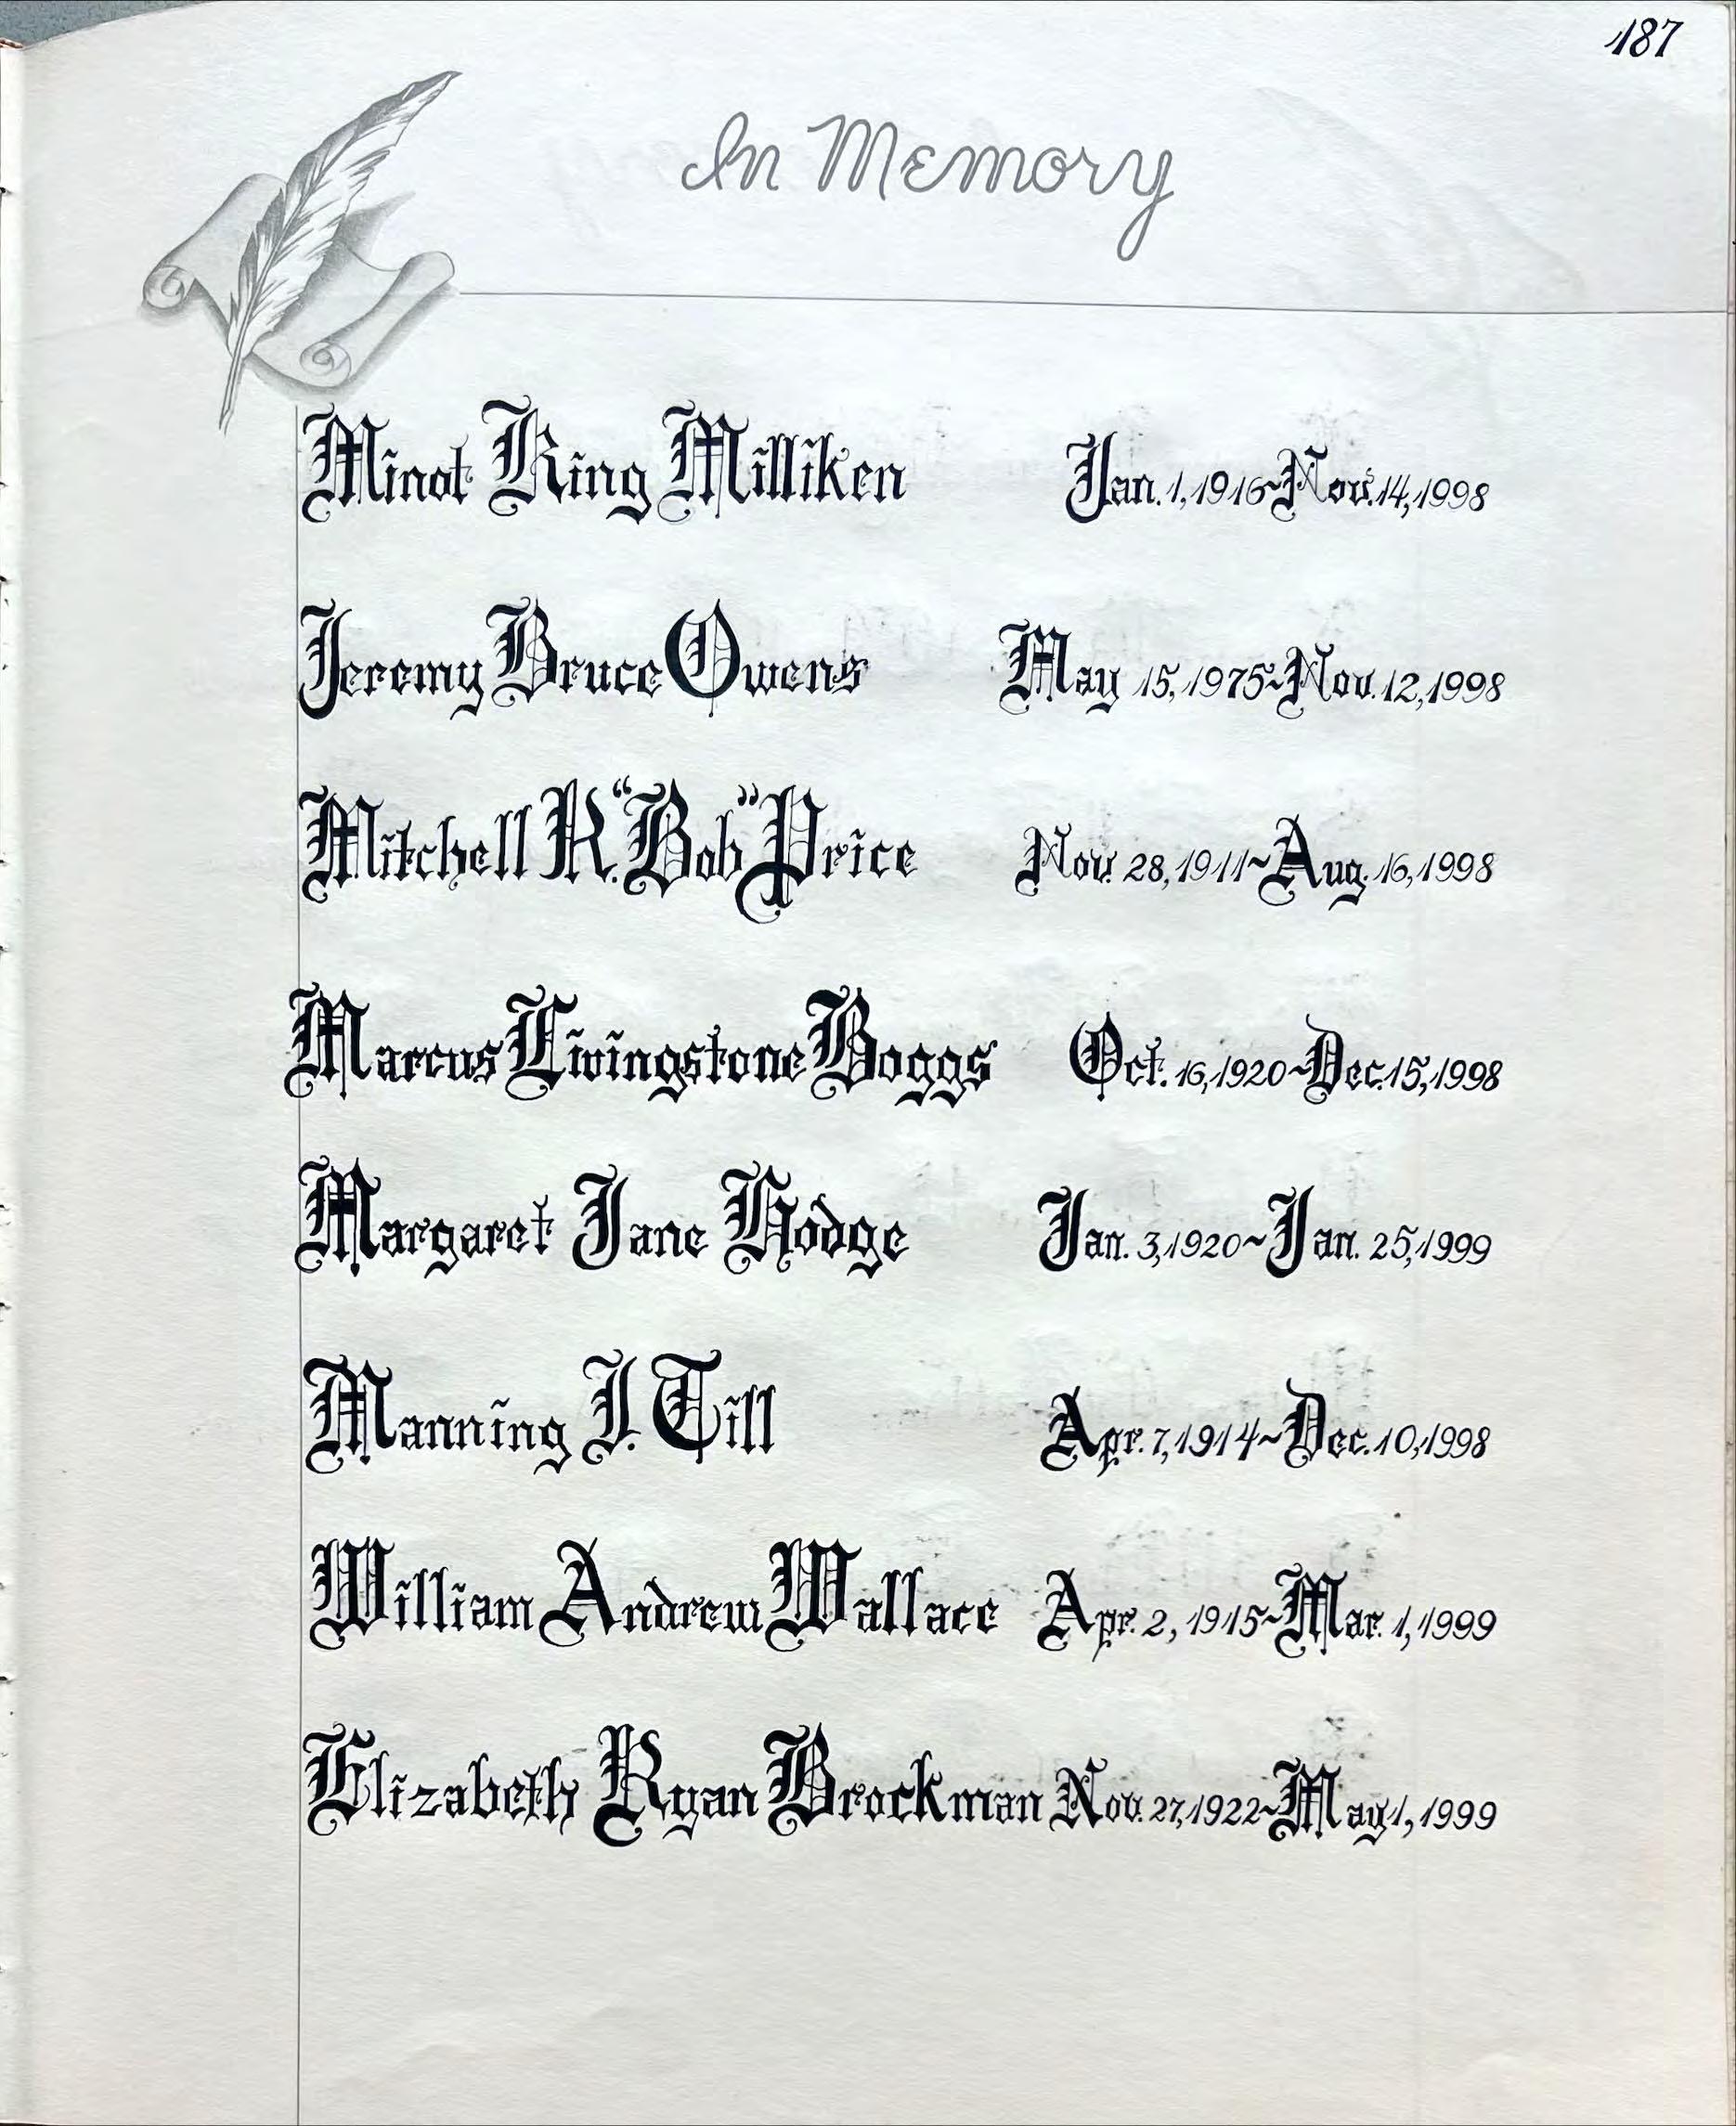 187
In Memory
Minot King Milliken Jan. 1, 1916~Nov. 14, 1998
Jeremy Bruce Owens May 15, 1975~Nov. 12, 1998
Mitchell R. "Bob" Price Nov. 28, 1911~Aug. 16, 1998
Marcus Livingstone Boggs Oct. 16, 1920~Dec. 15, 1998
Margaret Jane Hodge Jan. 3, 1920~Jan. 25, 1999
Manning J. Till Apr. 7, 1914~Dec. 10, 1998
William Andrew Wallace Apr. 2, 1915~Mar. 1, 1999
Elizabeth Ryan Brockman Nov. 27, 1922~May 1, 1999